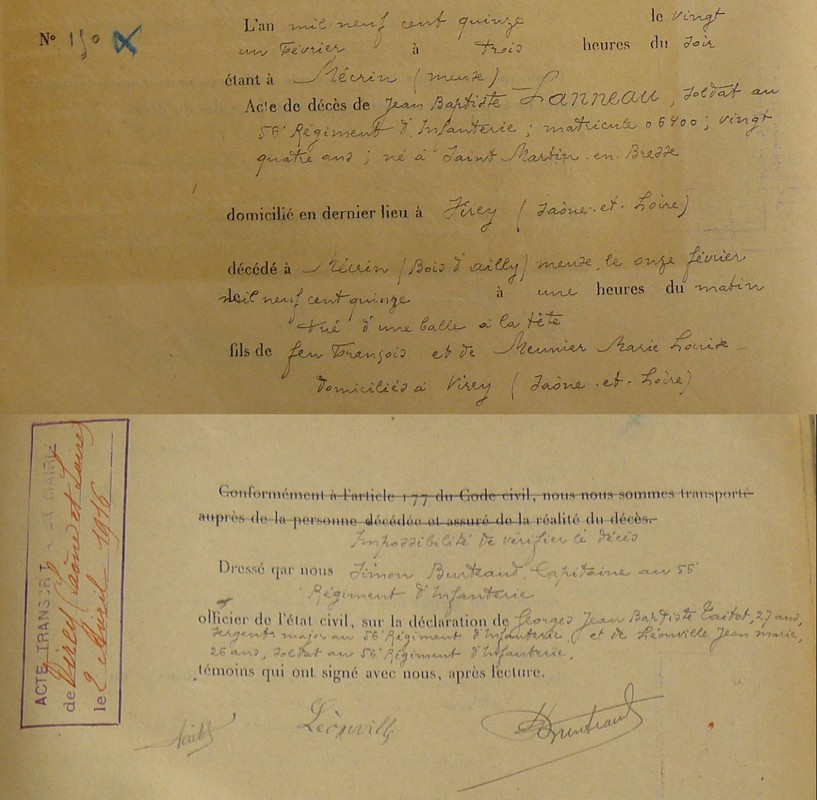 N° 150 L'an mil neuf cent quinze le vingt
un Février à trois heures du soir
étant à Mécrin (Meuse)
Acte de décès de Jean Baptiste Lanneau, soldat au
56e Régiment d'Infanterie ; matricule 06400 ; vingt
quatre ans ; né à Saint Martin-en-Bresse
domicilié en dernier lieu à Virey (Saône-et-Loire)
décédé à Mécrin (Bois d'ailly) meuse, le onze février
mil neuf cent quinze à une heures du matin
tué d'une balle à la tête
fils de feu François et de Meunier Marie Louise
domiciliés à Virey (Saône-et-Loire)
Conformément à l'article 177 du Code civil, nous nous sommes transporté
auprès de la personne décédée et assuré de la réalité du décès.
Impossibilité de vérifier le décès
Dressé qar nous Simon Burteaud, Capitaine au 56e
Régiment d'Infanterie
officier de l'état civil, sur la déclaration de Georges Jean Baptiste Taitot, 27 ans,
sergent major au 56e Régiment d'Infanterie, et de Léonville Jean marie,
26 ans, soldat au 56e Régiment d'Infanterie,
témoins qui ont signé avec nous, après lecture.
Léonville
ACTE TRANSCRIT MAIRIE
de Virey (Saône et Loire)
le 2 Avril 1916